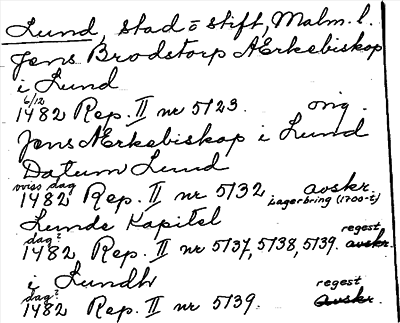 Lund, stad o stift, Malm. l.
Jens Brodstorp Ærkebiskop
i Lund
6/12
1482 Rep. II nr 5123. orig.
Jens Ærkebiskop i Lund
Datum Lund
viss dag
1482 Rep. II nr 5132. avskr.
Lagerbring (1700-t)
Lunde Kapitel
dag? regest
1482, Rep. II nr 5137, 5138, 5139. avskr.
i Lundh
dag? regest
1482 Rep. II nr 5139. avskr.